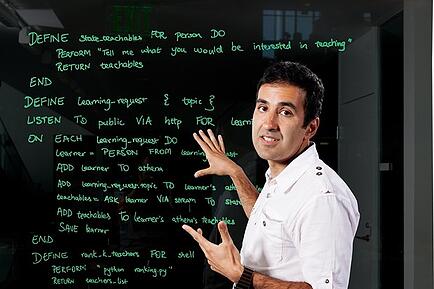 EXIT
DEFINE state_teachables FOR person DO
PERFORM "Tell me what you would be interested in teaching"
RETURN teachables
END
DEFINE learning_request { topic }
LISTEN TO public VIA http FOR
ON EACH learning_request DO
learner = PERSON FROM
ADD learner TO athena
ADD learning_request.topic TO learner's
teachables = ASK learner VIA stream TO
ADD teachables TO learner's athena's teachables
SAVE learner
END
DEFINE rank_k_teachers FOR shell
PERFORM "python ranking.py"
RETURN teachers_list